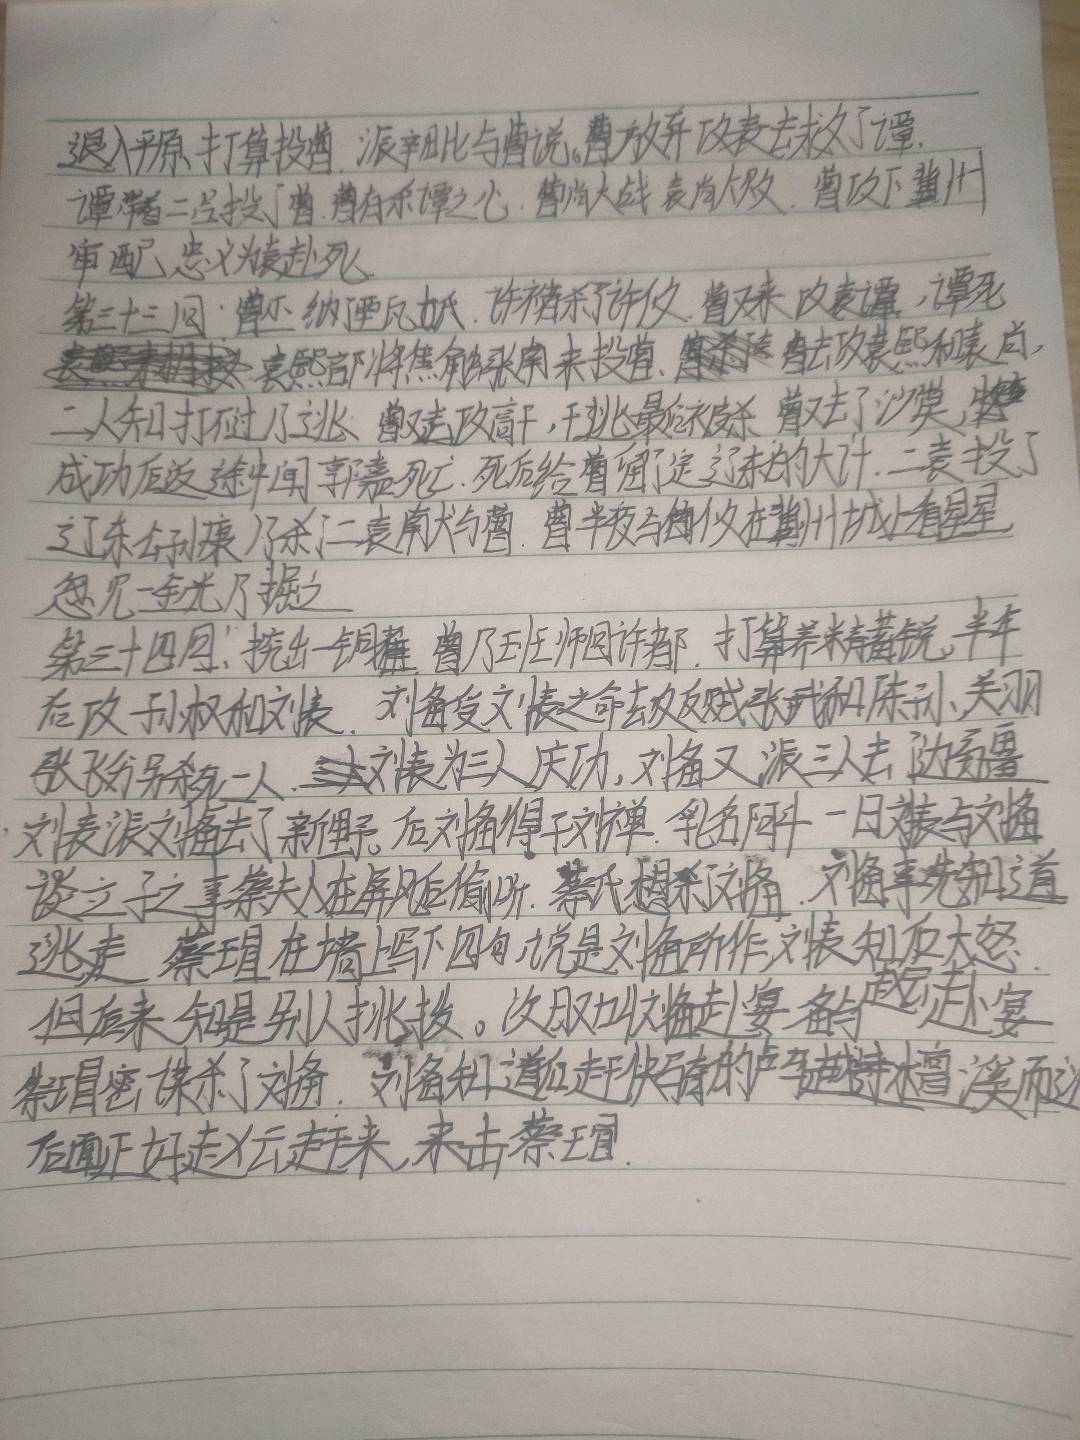 退入平原、打算投曹.派辛毗与曹说。曹放弃攻表去救了谭.
谭带着二吕投了曹.曹有杀谭之心.曹尚大战袁尚大败.曹攻下冀州
审配忠义为袁赴死.
第三十三回:曹丕纳甄氏.许褚杀了许攸.曹又来攻袁谭,谭死
袁熙部将焦触张南来投曹、曹去攻袁熙和袁尚,
二人知打不过乃逃、曹又去攻高干,干逃最后被杀曹又去了沙漠,
成功后返途中间郭嘉死亡.死后给曹留了定辽东的大计.二袁投了
辽东公孙康乃杀了二袁献与曹.曹半夜与荀攸在冀州城上看星星
忽见一金光乃掘之
第三十四回:挖出一铜雀.曹乃班师回许都.打算养精蓄锐,半年
后攻孙权和刘表.刘备受刘表之命去攻反贼张武和陈孙、关羽
张飞分另杀死一人.刘表为三人庆功,刘备又派三人去边疆
刘表派刘备去了新野、后刘备得子刘禅.乳名阿斗一日刘表与刘备
谈立子之事蔡夫人在屏风后偷听.蔡氏想杀刘备.刘备事先知道
逃走蔡瑁在墙上写下四句,说是刘备所作,刘表知后大怒.
但后来知是别人挑拨。次日又叫刘备赴宴备与赵云赴宴
蔡瑁密谋杀了刘备.刘备知道后赶快骑的卢马越檀溪而
后面正好赵云赶来,来击蔡瑁.